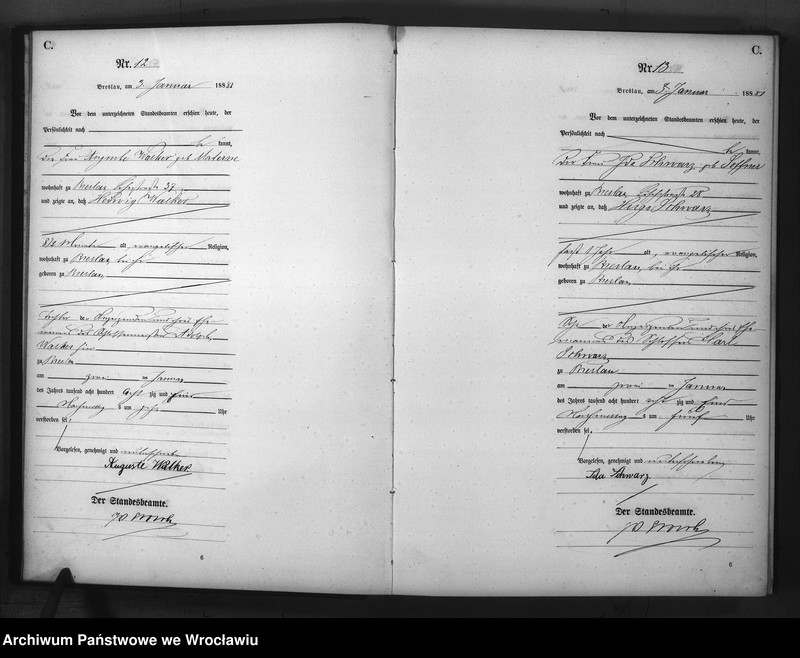 C.
Nr. 12
Breslau, am 3. Januar 1881
Vor dem unterzeichneten Standesbeamten erschien heute, der
Persönlichkeit nach
be kannt,
Die Frau Auguste Walker geb. Materne
wohnhaft zu Breslau 27
und zeigte an, daß Hedwig Walker
Monate alt, evangelischer Religion,
wohnhaft zu Breslau bei ihr
geboren zu Breslau
Tochter der Anzeigenden und ihres Ehe
mannes des Adolph
Walker hier
zu Breslau
am zwei ten Januar
des Jahres tausend acht hundert acht zig und
Nachmittag s um Uhr
verstorben sei.
Vorgelesen, genehmigt und unterschrieben
Auguste Walker
Der Standesbeamte.
6
C.
Nr. 13
Breslau, am 3. Januar 1881
Vor dem unterzeichneten Standesbeamten erschien heute, der
Persönlichkeit nach
be kannt,
Die Frau Ida Schwarz geb.
wohnhaft zu Breslau 28
und zeigte an, daß Schwarz
fast 1 Jahr alt, evangelischer Religion,
wohnhaft zu Breslau, bei ihr
geboren zu Breslau
der Anzeigenden und ihres Ehe
mannes des Schlossers Carl
Schwarz
zu Breslau
am zwei ten Januar
des Jahres tausend acht hundert acht zig und
Nachmittag s um fünf Uhr
verstorben sei.
Vorgelesen, genehmigt und unterschrieben
Ida Schwarz
Der Standesbeamte.
6
Archiwum Państwowe we Wrocławiu